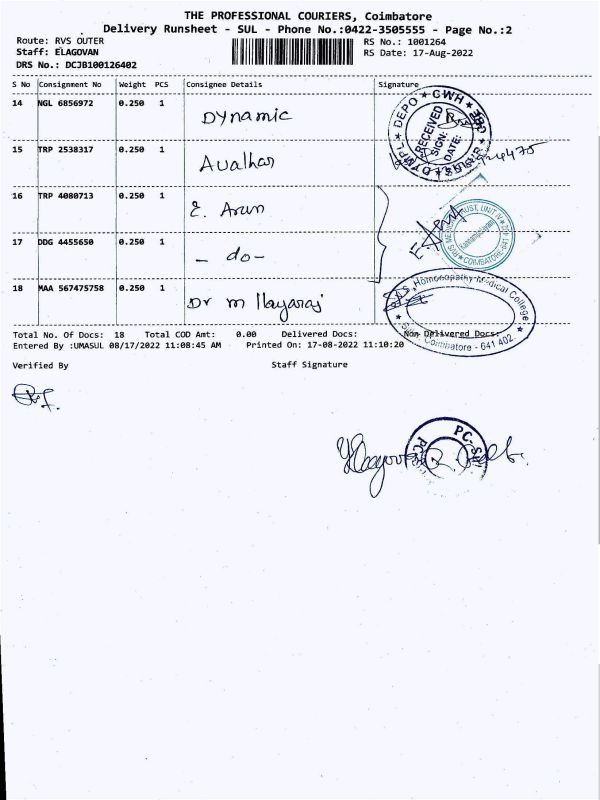 THE PROFESSIONAL COURIERS, Coimbatore
Delivery Runsheet - SUL - Phone No.:0422-3505555 - Page No.:2
Route: RVS OUTER RS No.: 1001264
Staff: ELAGOVAN RS Date: 17-Aug-2022
DRS No.: DCJB100126402
S No Consignment No Weight PCS Consignee Details Signature
14 NGL 6856972 0.250 1 Dynamic
DEPO * CWH * CBE
RECEIVED
SIGN:
DATE:
15 TRP 2538317 0.250 1 Avalhar
16 TRP 4080713 0.250 1 E. Arun
17 DDG 4455650 0.250 1 - do -
COIMBATORE-641 402
18 MAA 567475758 0.250 1 Dr M Ilayaraj
Homoeopathy Medical College
Coimbatore - 641 402.
Total No. Of Docs: 18 Total COD Amt: 0.00 Delivered Docs: Non Delivered Docs:
Entered By :UMASUL 08/17/2022 11:08:45 AM Printed On: 17-08-2022 11:10:20
Verified By Staff Signature